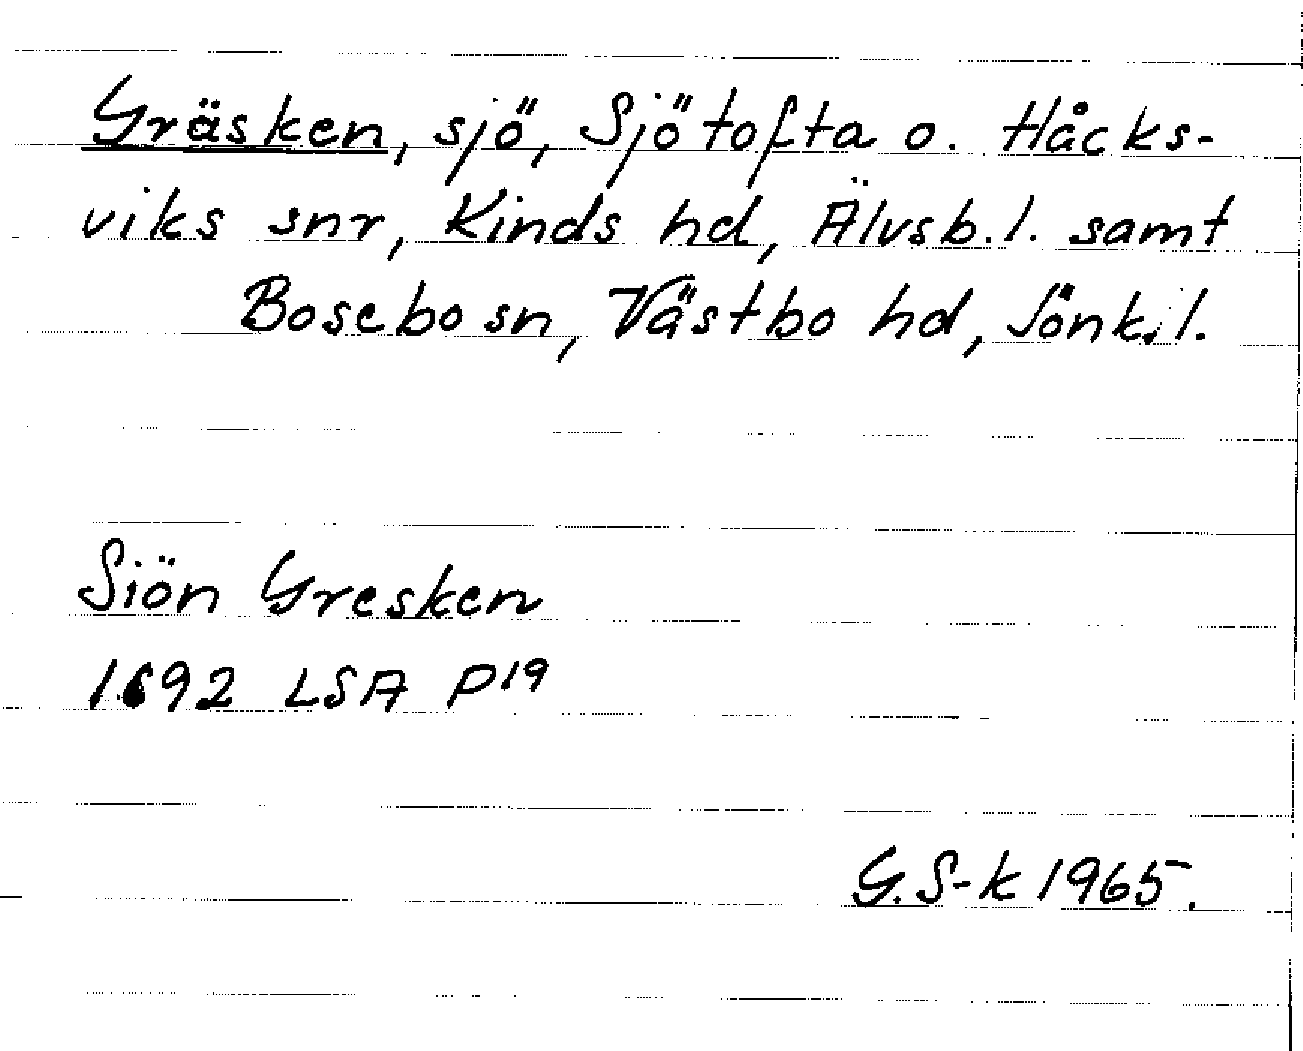 Gräsken, sjö, Sjötofta o. Håcks-
viks snr, Kinds hd, Älvsb. l. samt
Bosebo sn, Västbo hd, Jönk. l.
Siön Gresken
1692 LSA P19
G. S-k 1965.